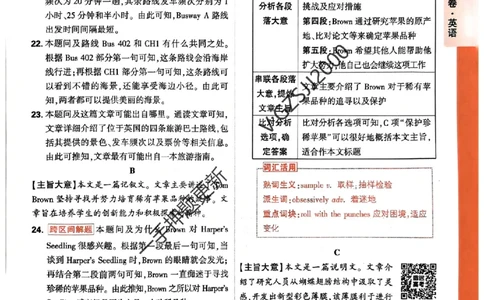 频次为20分钟一趟,其余路线及车频次分别为1
小时、25分钟和半小时。由此可知,Busway A路线
出发时间间隔最短。
22. 本题问及路线Bus 402和CH1有什么共同之处。
根据Bus 402部分第一句可知,这条路线会沿海岸
线行进;再根据CH1部分第一句可知,这条路线可
以看到不错的海景,还能享受海边小径。由此可
知,两者都可以提供美丽的海景。
23. 本题问及这篇文章可能出自哪里。通读文章可知,
文章详细介绍了位于英国的四条旅游巴士路线,包
括其提供的景色、发车频次以及票价等相关信息。
由此可推知,文章最有可能出自一本旅游指南。
B
【主旨大意】本文是一篇记叙文。文章主要讲述了Tom
Brown坚持寻找并努力培育稀有苹果品种的故事。文
章旨在培养学生的创新能力和积极探索的精神。
24. 跨区间解题 本题问及为什么Brown对Harper's
Seedling很感兴趣。根据第一段最后一句可知,当
谈到Harper's Seedling时,Brown的眼睛就会发光;
再结合第二段前两句可知,Brown一直痴迷于寻找
珍稀的苹果品种。由此推知,Brown之所以对Harper's
分析各段
落大意
挑战及应对措施
第四段:Brown通过研究苹果的原产
地、比对论文等来确定苹果品种
第五段:Brown希望其他人能帮助他
扩大,他自己也会继续这项工作
串联各段落
大意,提炼
文章主旨
文章主要介绍了Brown对于稀有苹
果品种的追寻以及保护
比对分析
选项,确
定答案
比对分析各选项可知,C项“保护珍
稀苹果”可以很好地概括本文主旨,
适合作本文标题
词汇活用
熟词生义:sample v. 取样,抽样检验
派生词:obsessively adv. 着迷地
重点词块:roll with the punches 应对困境,适应
变化
C
【主旨大意】本文是一篇说明文。文章介
绍了研究人员从蝴蝶翅膀结构中汲取了灵
感,并发出新型彩色薄膜,该薄膜利于进行
卷·英语
VGZSJI2000
王押题更新